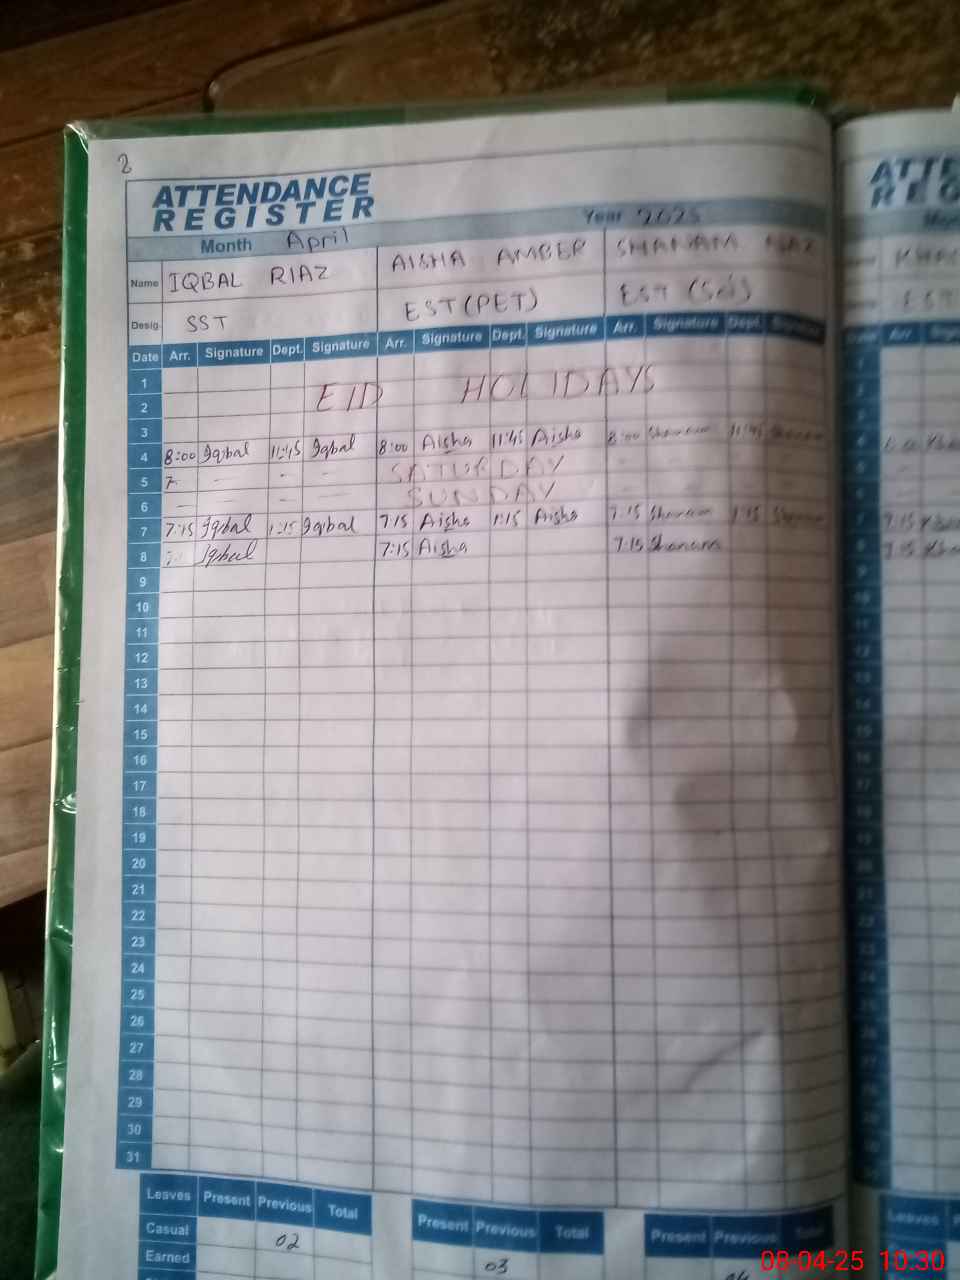 2
ATTENDANCE
REGISTER
Month April Year 2025
Name IQBAL RIAZ AISHA AMBER SHANAM NAZ
Desig. SST EST (PET) EST
Date Arr. Signature Dept. Signature Arr. Signature Dept. Signature Arr. Signature Dept. Signature
1
2 EID HOLIDAYS
3
4 8:00 Iqbal 11:45 Iqbal 8:00 Aisha 11:45 Aisha 8:00 Shanam 11:45 Shanam
5 7 - - - SATURDAY - -
6 - - - SUNDAY - -
7 7:15 Iqbal 1:15 Iqbal 7:15 Aisha 1:15 Aisha 7:15 Shanam 1:15 Shanam
8 Iqbal 7:15 Aisha 7:15 Shanam
9
10
11
12
13
14
15
16
17
18
19
20
21
22
23
24
25
26
27
28
29
30
31
Leaves Present Previous Total Present Previous Total Present Previous
Casual 02
Earned 03
08-04-25 10:30